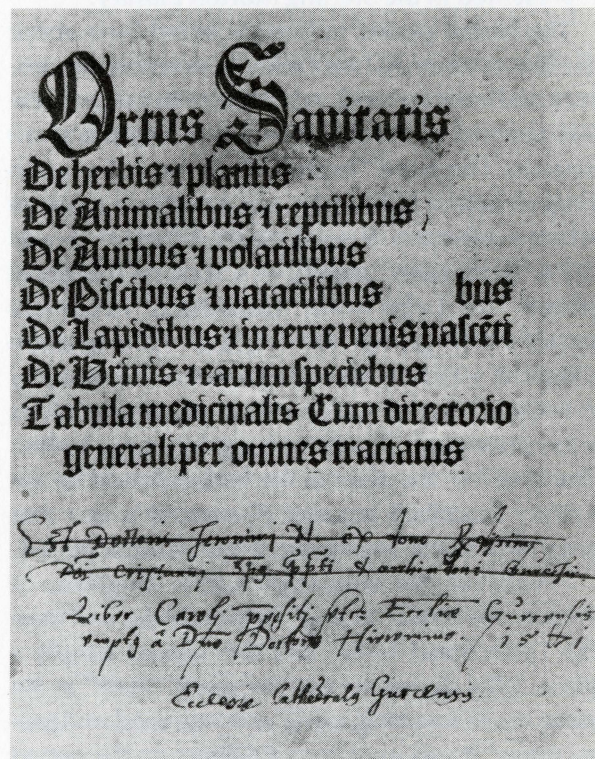 Ortus Sanitatis
De herbis ⁊ plantis
De Animalibus ⁊ reptilibus
De Auibus ⁊ volatilibus
De Piscibus ⁊ natatilibus bus
De Lapidibus ⁊ in terre venis nascēti
De Vrinis ⁊ earum speciebus
Tabula medicinalis Cum directorio
generali per omnes tractatus
Est Doctoris Jeronimi
Liber Caroli Ecclīæ Gurcensis
à Dno Doctore Hieronimo. 1571
Ecclesiæ Cathedralis Gurcensis.